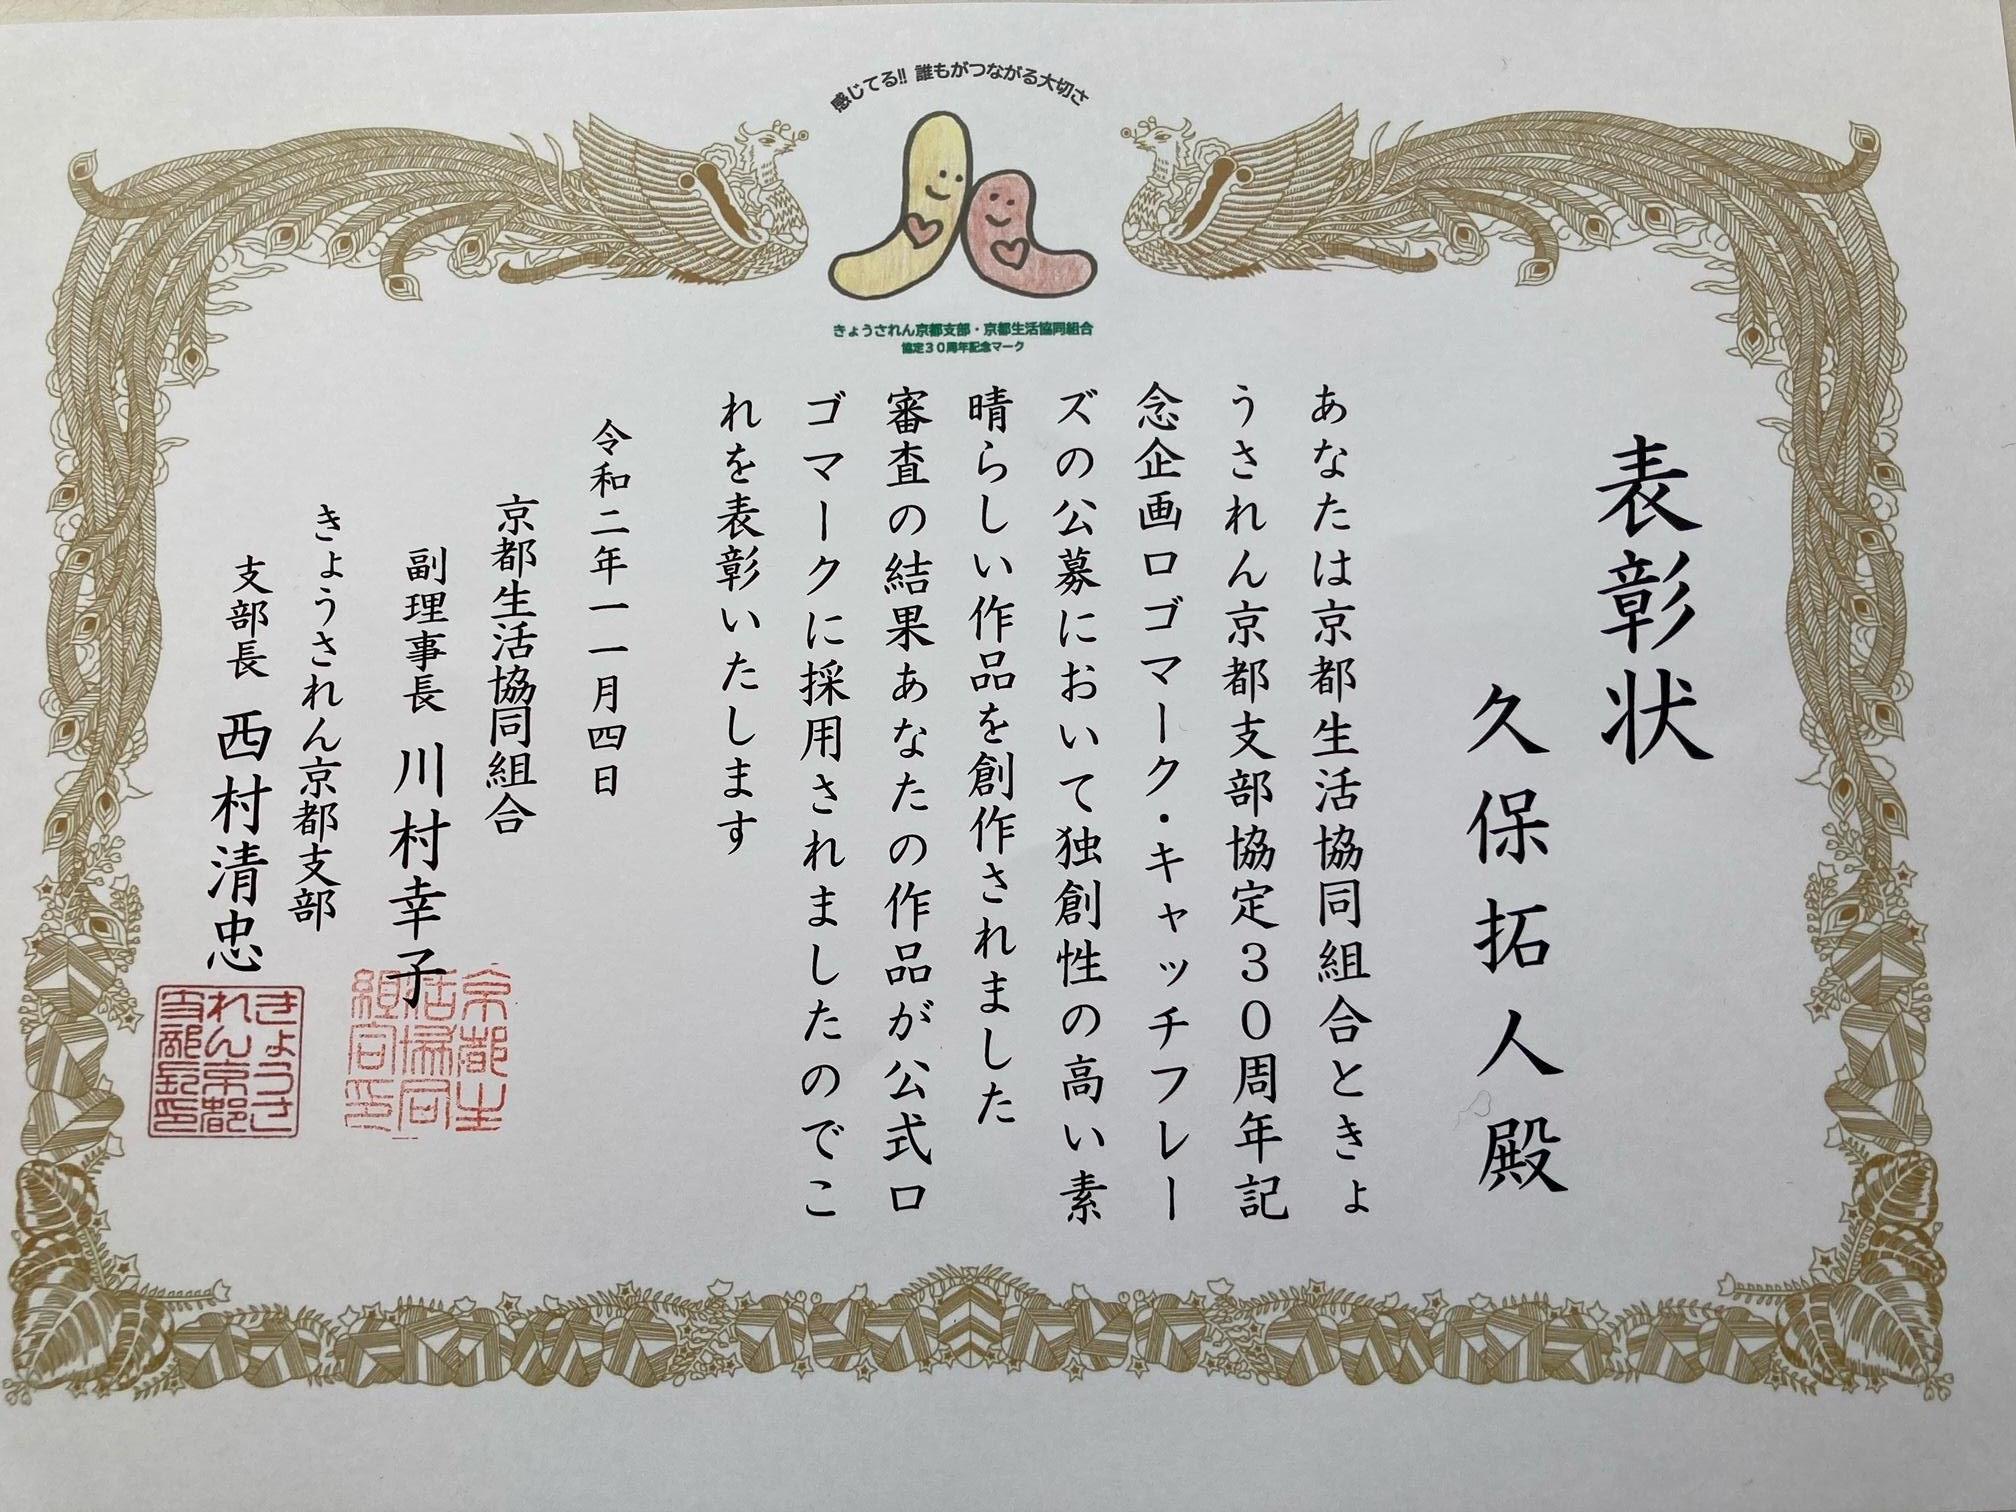 感じてる!! 誰もがつながる大切さ
きょうされん京都支部・京都生活協同組合
協定３０周年記念マーク
表彰状
久保拓人殿
あなたは京都生活協同組合ときょ
うされん京都支部協定３０周年記
念企画ロゴマーク・キャッチフレー
ズの公募において独創性の高い素
晴らしい作品を創作されました
審査の結果あなたの作品が公式ロ
ゴマークに採用されましたのでこ
れを表彰いたします
令和二年一一月四日
京都生活協同組合
副理事長 川村幸子
京都生
活協同
組合印
きょうされん京都支部
支部長 西村清忠
きょうさ
れん京都
支部長印